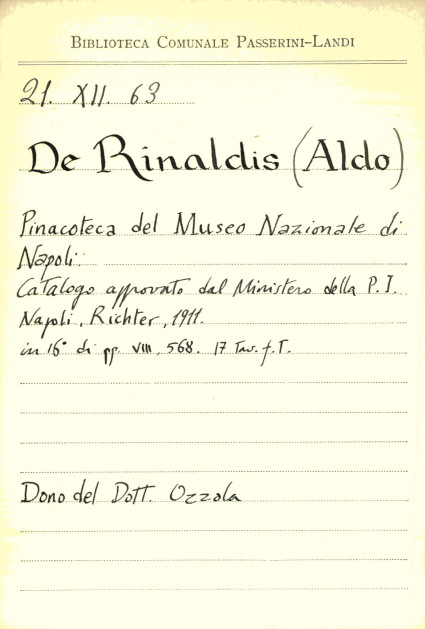 BIBLIOTECA COMUNALE PASSERINI-LANDI
21. XII. 63
De Rinaldis (Aldo)
Pinacoteca del Museo Nazionale di
Napoli:
Catalogo approvato dal Ministero della P. I.
Napoli, Richter, 1911.
in 16° di pp. VIII, 568. 17 Tav. f. T.
Dono del Dott. Ozzola